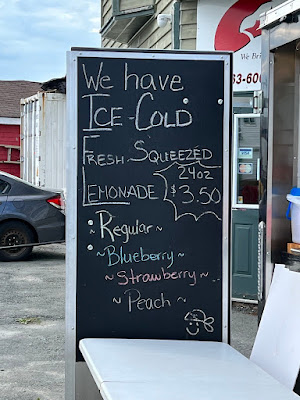 We have
ICE-COLD
FRESH-SQUEEZED
LEMONADE
24oz
$3.50
~Regular~
~Blueberry~
~Strawberry~
~Peach~
We Br
63-60